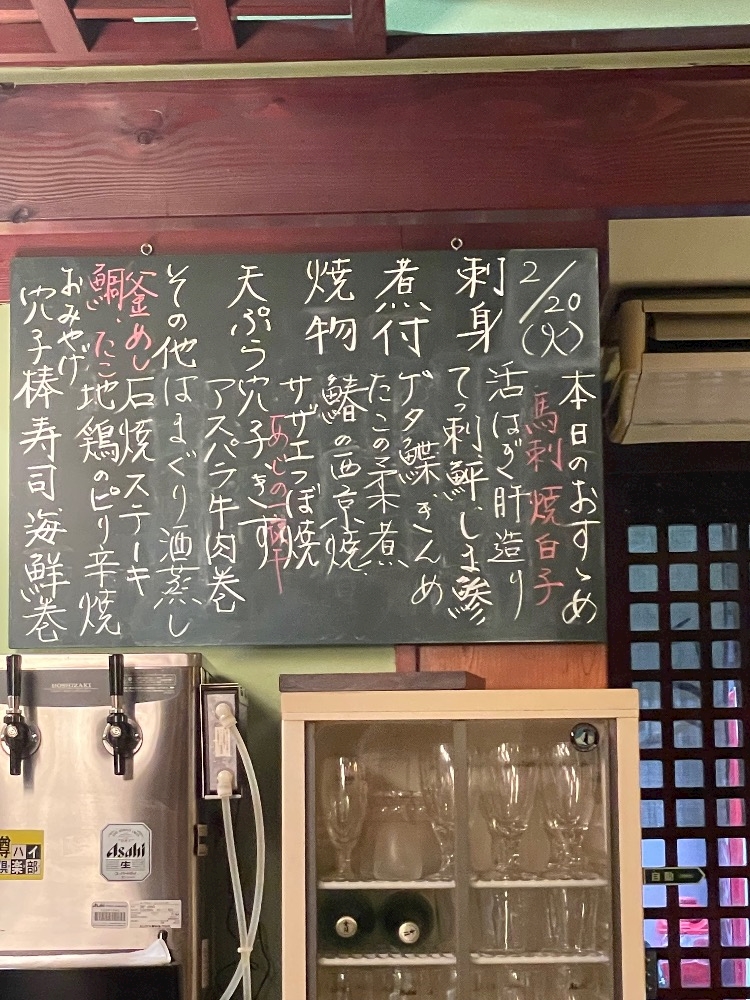 2/20(火)
本日のおすゝめ
馬刺 焼白子
刺身
活はぎ肝造り
てっ刺 鮃 しま鯵
煮付
ゲタ鰈 きんめ
たこの柔煮
焼物
鰆の西京焼
サザエつぼ焼
あじの一夜干
天ぷら
穴子 きす
アスパラ牛肉巻
その他
はまぐり酒蒸し
石焼ステーキ
地鶏のピリ辛焼
釜めし
鯛、たこ
おみやげ
穴子棒寿司 海鮮巻
HOSHIZAKI
Asahi
生
樽ハイ
倶楽部
自動